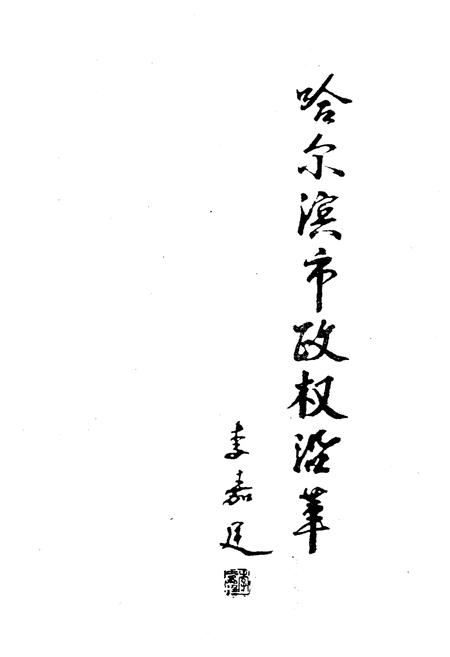 哈尔滨市政权沿革
李嘉廷